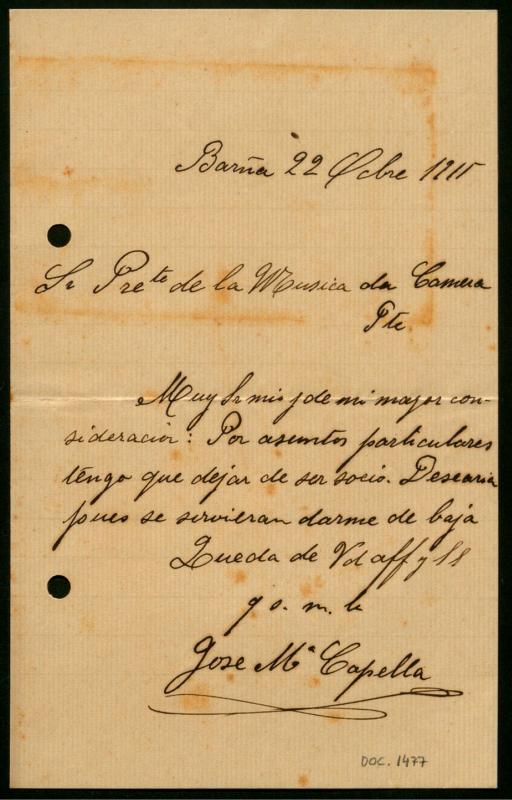 Barña 22 Obre 1915
Sr Pre^te de la Musica da Camera
Pte
Muy Sr mio y de mi mayor con-
sideracion: Por asuntos particulares
tengo que dejar de ser socio. Desearia
pues se sirvieran darme de baja
Queda de Vd aff y SS
q s. m. b
Jose Mª Capella
DOC. 1477